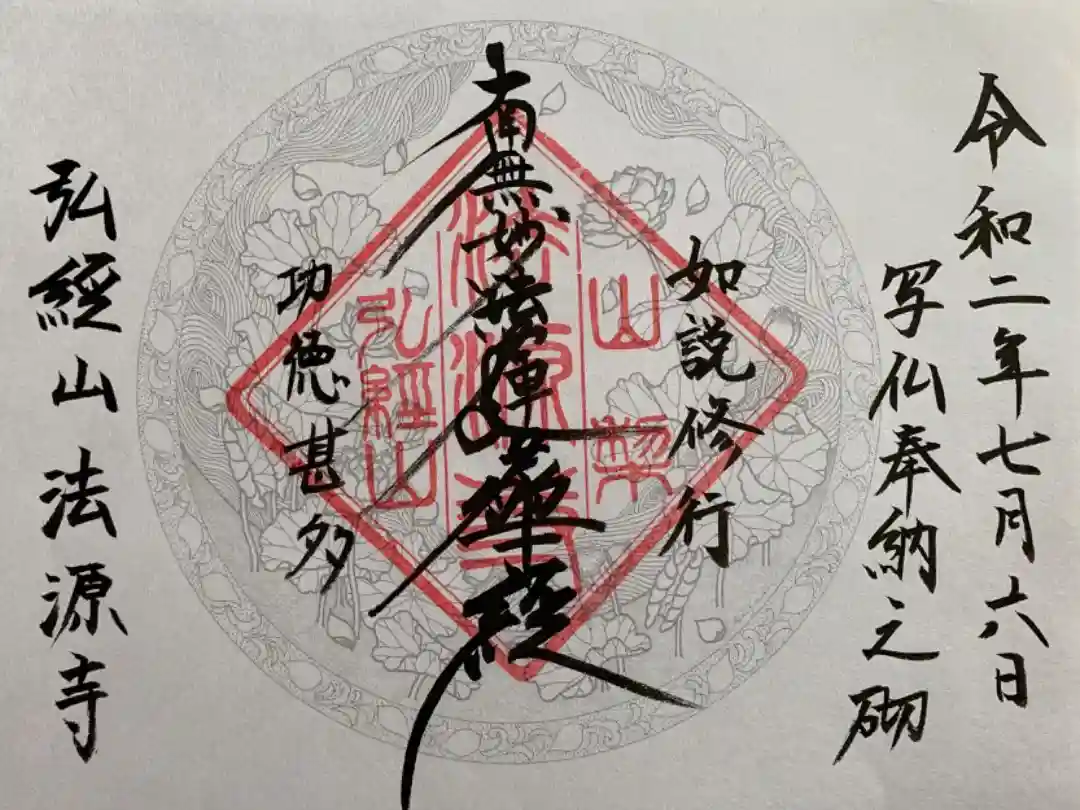 令和二年七月六日
写仏奉納之砌
如説修行
南無妙法蓮華経
功徳甚多
弘經山法源寺
山梨
法源寺
弘經山